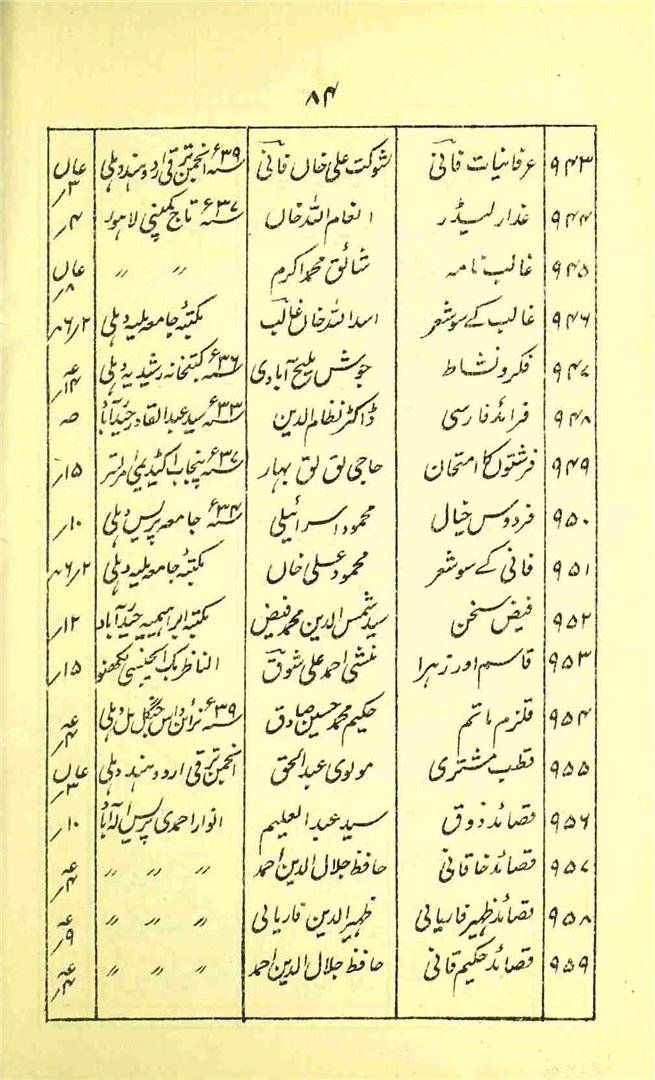 ۸۴
۹۴۳ عرفانیات فانی شوکت علی خاں فانی ۳۹ء انجمن ترقی اردو ہند دہلی
۹۴۴ غدار لیڈر انعام اللہ خاں ۳۷ء تاج کمپنی لاہور ۴ر
۹۴۵ غالب نامہ شائق محمد اکرم 〃 〃
۹۴۶ غالب کے سو شعر اسد اللہ خاں غالب مکتبۂ جامعہ ملیہ دہلی
۹۴۷ فکر و نشاط جوش ملیح آبادی ۳۶ء کتبخانہ رشیدیہ دہلی
۹۴۸ فرائد فارسی ڈاکٹر نظام الدین ۳۳ء سید عبدالقادر حیدرآباد
۹۴۹ فرشتوں کا امتحان حاجی لق لق بہار ۳۷ء پنجاب اکیڈیمی امرتسر ۱۵ر
۹۵۰ فردوس خیال محمود اسرائیلی ۳۴ء جامعہ پریس دہلی ۱۰ر
۹۵۱ فانی کے سو شعر محمود علی خاں مکتبۂ جامعہ ملیہ دہلی
۹۵۲ فیض سخن سید شمس الدین محمد فیض مکتبہ ابراہیمیہ حیدرآباد ۱۲ر
۹۵۳ قاسم اور زہرا منشی احمد علی شوق الناظر بک ایجنسی لکھنو ۱۵ر
۹۵۴ قلزم ماتم حکیم محمد حسین صادق ۳۹ء نرائن داس جنگل مل دہلی
۹۵۵ قطب مشتری مولوی عبدالحق انجمن ترقی اردو ہند دہلی
۹۵۶ قصائد ذوق سید عبدالعلیم انوار احمدی پریس الہ آباد ۱۰ر
۹۵۷ قصائد خاقانی حافظ جلال الدین احمد 〃 〃 〃
۹۵۸ قصائد ظہیر فاریابی ظہیر الدین فاریابی 〃 〃 〃
۹۵۹ قصائد حکیم قانی حافظ جلال الدین احمد 〃 〃 〃